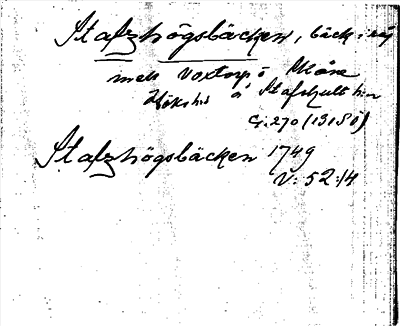 Stafzhögsbäcken, bäck i råg
mell Voxtorp o Skåne
Höks hd o Stafhult hm
G:270 (1318 )
Stafzhögsbäcken 1749
V:52:14